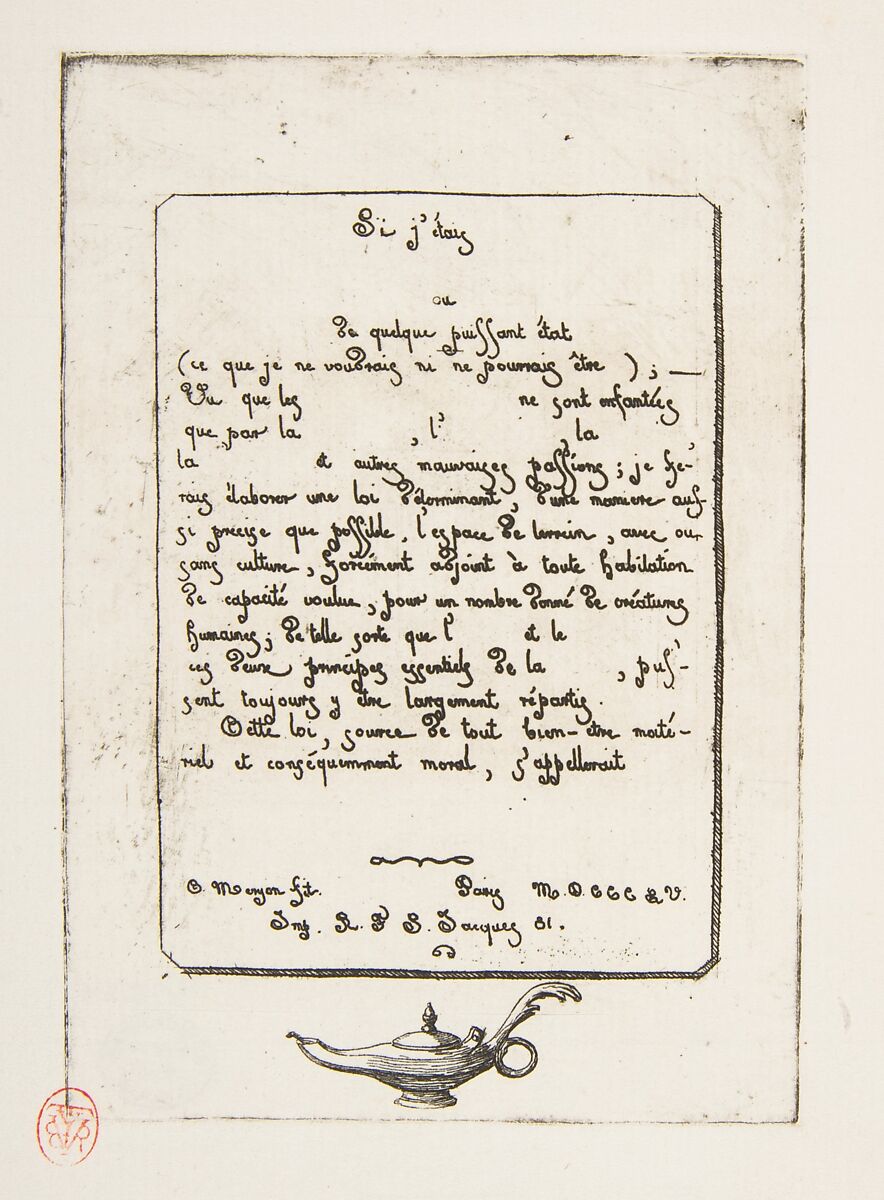 Si j'étais
ou
de quelque puissant état
(ce que je ne voudrais ni ne pourrais être ) ; —
Vu que les ne sont enfantées
que par la , l' , la ,
la et autres mauvaises passions ; je fe-
rais élaborer une loi déterminant, d'une maniere aus-
si precise que possible, l'espace de terrein, avec ou
sans culture, forcément adjoint à toute habitation
de capacité voulue, pour un nombre donné de créatures
humaines ; de telle sorte que l' et le ,
ces deux principes essentiels de la , puis-
sent toujours y être largement répartis.
Cette loi, source de tout bien-être maté-
riel et conséquemment moral, s'appellerait
C. Meryon fit. Paris M.D.CCC
Imp. R. S. Jacques 81.